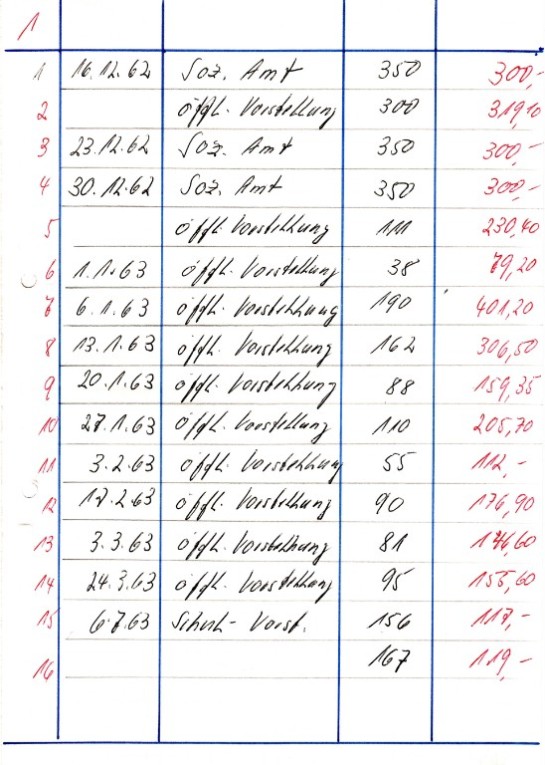 1
1 16.12.62 Soz. Amt 350 300,-
2 öffl. Vorstellung 300 319,10
3 23.12.62 Soz. Amt 350 300,-
4 30.12.62 Soz. Amt 350 300,-
5 öffl. Vorstellung 111 230,40
6 1.1.63 öffl. Vorstellung 38 79,20
7 6.1.63 öffl. Vorstellung 190 401,20
8 13.1.63 öffl. Vorstellung 162 306,50
9 20.1.63 öffl. Vorstellung 88 159,35
10 27.1.63 öffl. Vorstellung 110 205,70
11 3.2.63 öffl. Vorstellung 55 112,-
12 17.2.63 öffl. Vorstellung 90 176,90
13 3.3.63 öffl. Vorstellung 81
14 24.3.63 öffl. Vorstellung 95 155,60
15 6.7.63 Schul-Vorst. 156 117,-
16 167 119,-